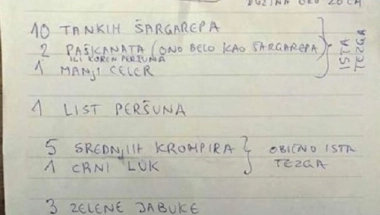 DUŽINA OKO 20 CM
10 TANKIH ŠARGAREPA
2 PAŠKANATA (ONO BELO KAO ŠARGAREPA)
ILI KOREN PERŠUNA
1 MANJI CELER
ISTA TEZGA
1 LIST PERŠUNA
5 SREDNJIH KROMPIRA
1 CRNI LUK
OBIČNO ISTA
TEZGA
3 ZELENE JABUKE